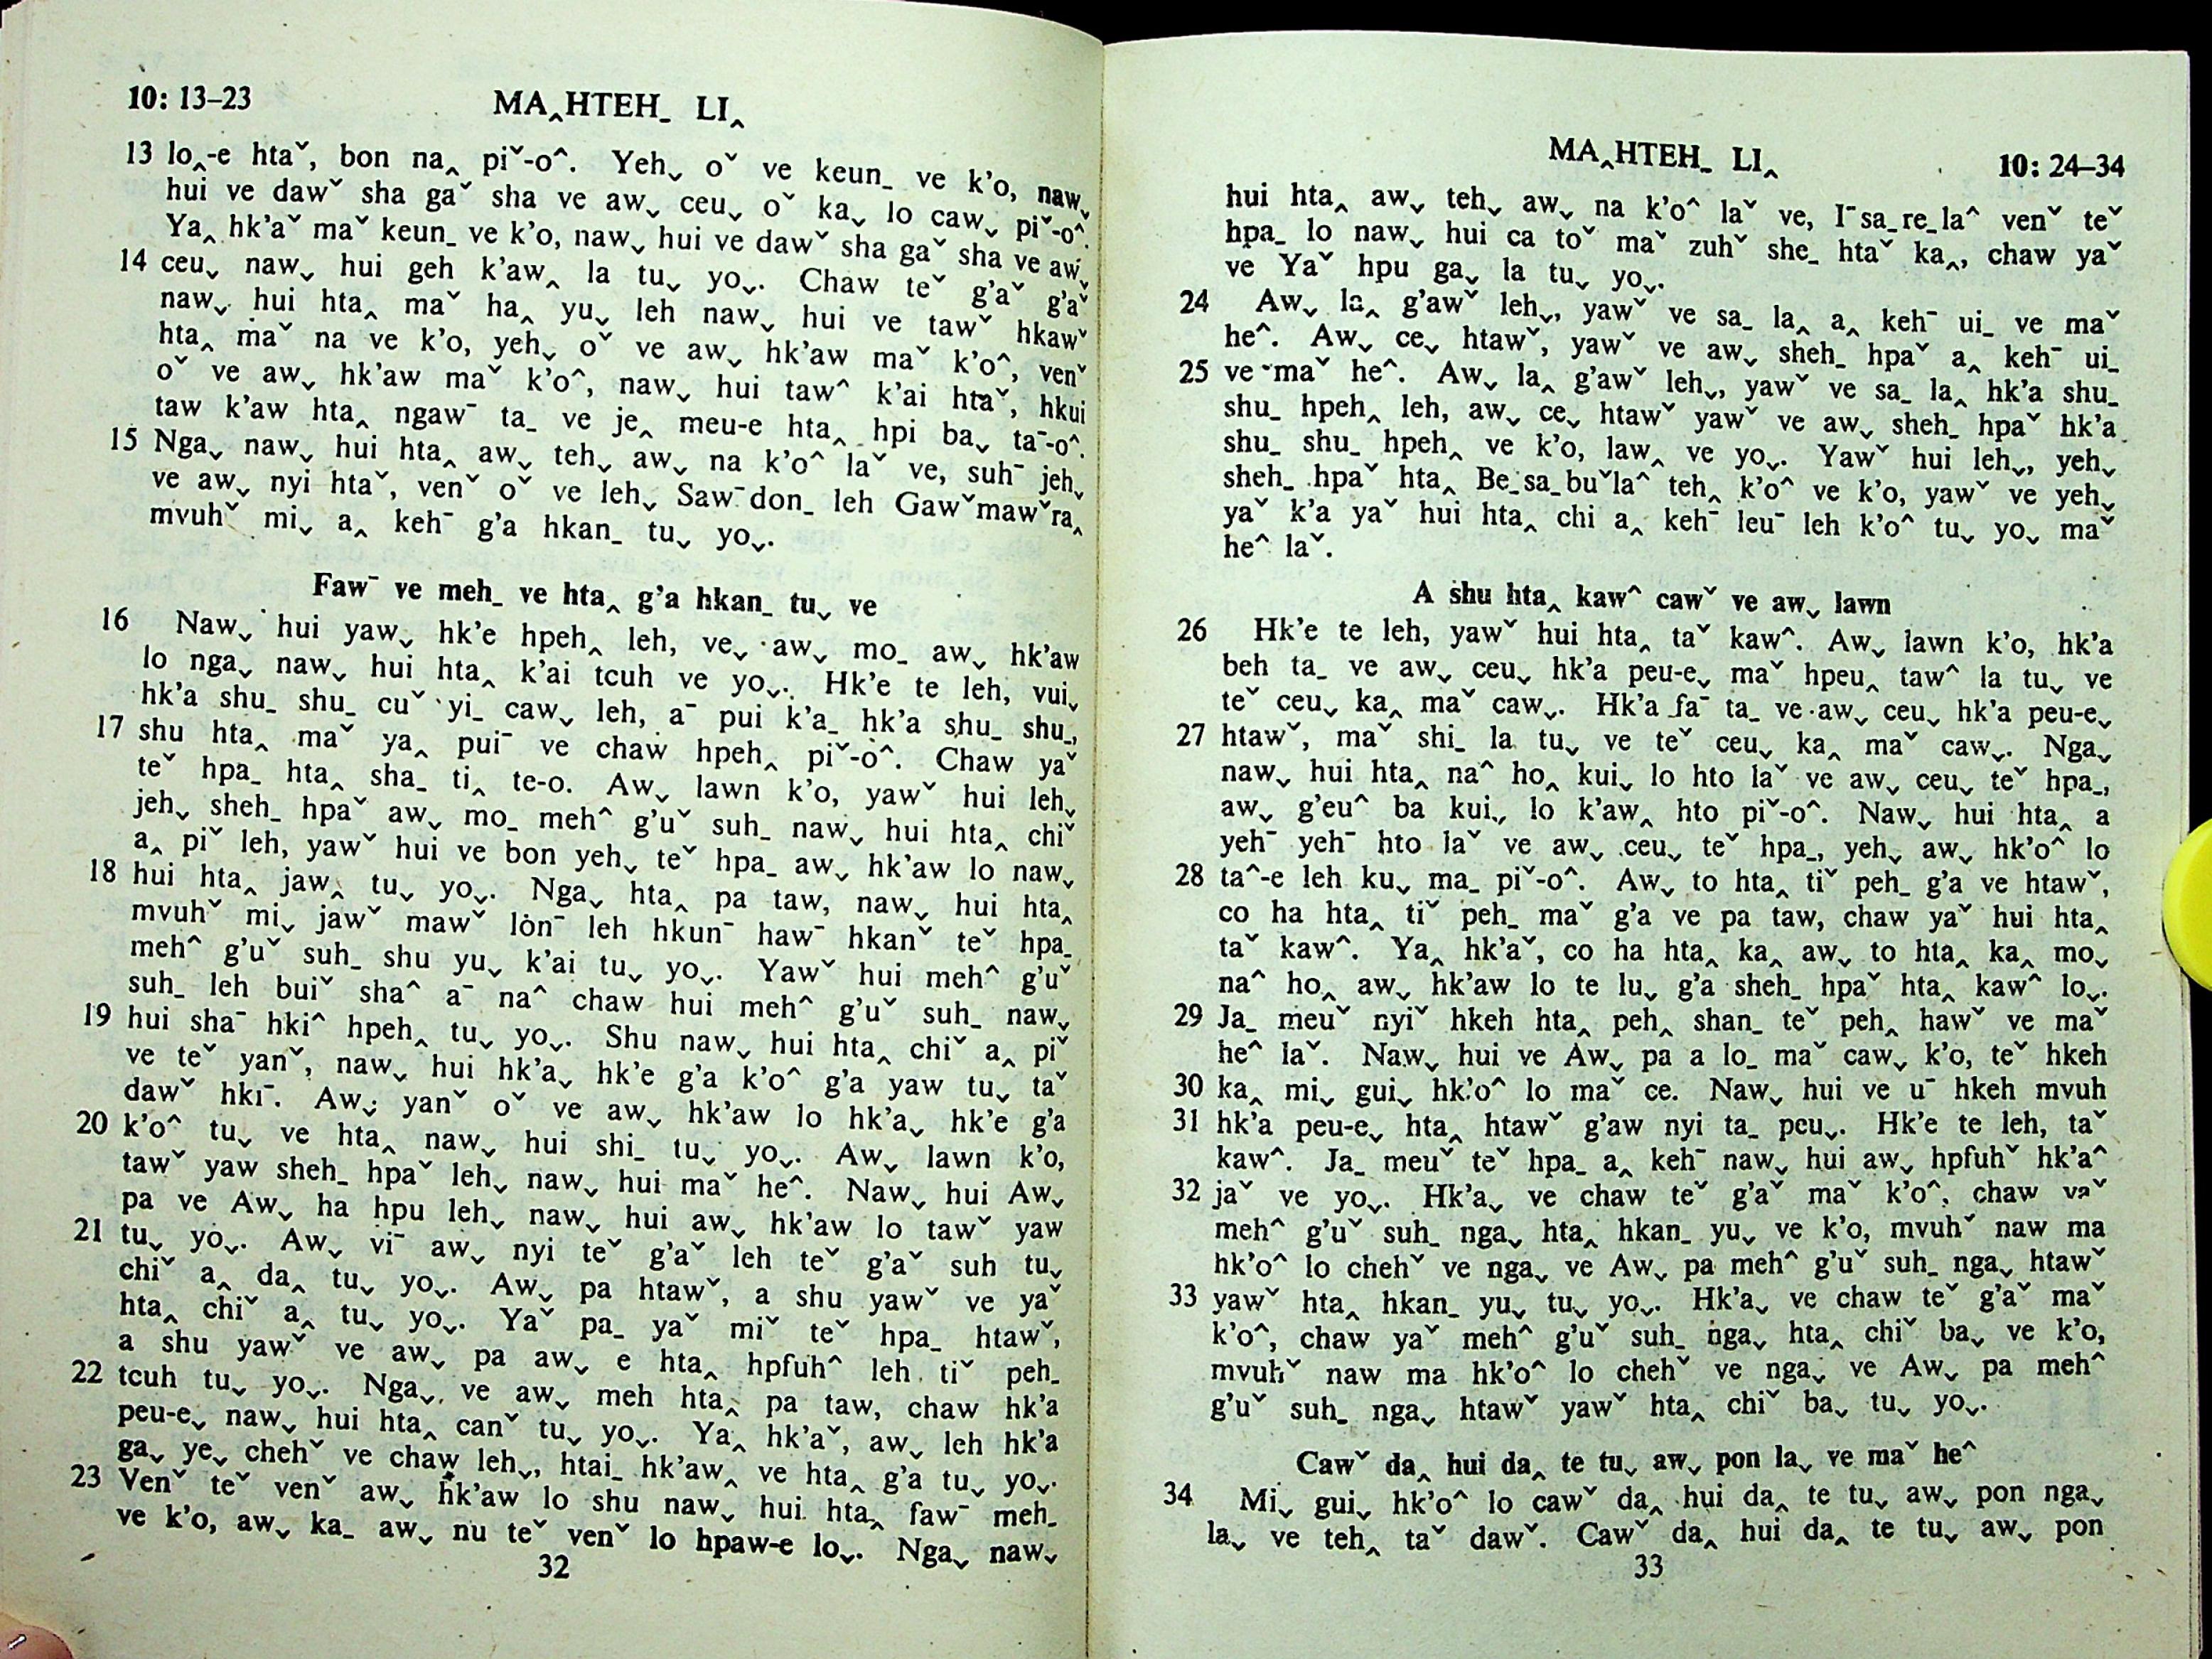 10: 13–23
MA‸HTEH˗ LI‸
13 lo‸-e htaˇ, bon na‸ piˇ-o^. Yehˬ oˇ ve keun˗ ve k’o, nawˬ
hui ve dawˇ sha gaˇ sha ve awˬ ceuˬ oˇ kaˬ lo cawˬ piˇ-o^.
Ya‸ hk’aˇ maˇ keun˗ ve k’o, nawˬ hui ve dawˇ sha gaˇ sha ve awˬ
14 ceuˬ nawˬ hui geh k’aw‸ la tuˬ yoˬ. Chaw teˇ g’aˇ g’aˇ
nawˬ hui hta‸ maˇ ha‸ yuˬ leh nawˬ hui ve tawˇ hkawˇ
hta‸ maˇ na ve k’o, yehˬ oˇ ve awˬ hk’aw maˇ k’o^, venˇ
oˇ ve awˬ hk’aw maˇ k’o^, nawˬ hui taw^ k’ai htaˇ, hkui
taw k’aw hta‸ ngaw¯ ta˗ ve je‸ meu-e hta‸ hpi baˬ ta¯-o^.
15 Ngaˬ nawˬ hui hta‸ awˬ tehˬ awˬ na k’o^ laˇ ve, suh¯ jehˬ
ve awˬ nyi htaˇ, venˇ oˇ ve lehˬ Saw¯don˗ leh Gawˇmawˇra‸
mvuhˇ miˬ a‸ keh¯ g’a hkan˗ tuˬ yoˬ.
Faw¯ ve meh˗ ve hta‸ g’a hkan˗ tuˬ ve
16 Nawˬ hui yawˬ hk’e hpeh‸ leh, veˬ awˬ mo˗ awˬ hk’aw
lo ngaˬ nawˬ hui hta‸ k’ai tcuh ve yoˬ. Hk’e te leh, vuiˬ
hk’a shu˗ shu˗ cuˇ yi˗ cawˬ leh, a¯ pui k’a˗ hk’a shu˗ shu˗,
17 shu hta‸ maˇ ya‸ pui¯ ve chaw hpeh‸ piˇ-o^. Chaw yaˇ
teˇ hpa˗ hta‸ sha˗ ti‸ te-o. Awˬ lawn k’o, yawˇ hui lehˬ
jehˬ sheh˗ hpaˇ awˬ mo˗ meh^ g’uˇ suh˗ nawˬ hui hta‸ chiˇ
a‸ piˇ leh, yawˇ hui ve bon yehˬ teˇ hpa˗ awˬ hk’aw lo nawˬ
18 hui hta‸ jaw‸ tuˬ yoˬ. Ngaˬ hta‸ pa taw, nawˬ hui hta‸
mvuhˇ miˬ jawˇ mawˇ lon¯ leh hkun¯ haw¯ hkanˇ teˇ hpa˗
meh^ g’uˇ suh˗ shu yuˬ k’ai tuˬ yoˬ. Yawˇ hui meh^ g’uˇ
suh˗ leh buiˇ sha^ a¯ na^ chaw hui meh^ g’uˇ suh˗ nawˬ
19 hui sha¯ hki^ hpeh‸ tuˬ yoˬ. Shu nawˬ hui hta‸ chiˇ a‸ piˇ
ve teˇ yanˇ, nawˬ hui hk’aˬ hk’e g’a k’o^ g’a yaw tuˬ taˇ
dawˇ hki¯. Awˬ yanˇ oˇ ve awˬ hk’aw lo hk’aˬ hk’e g’a
20 k’o^ tuˬ ve hta‸ nawˬ hui shi˗ tuˬ yoˬ. Awˬ lawn k’o,
tawˇ yaw sheh˗ hpaˇ lehˬ nawˬ hui maˇ he^. Nawˬ hui Awˬ
pa ve Awˬ ha hpu lehˬ nawˬ hui awˬ hk’aw lo tawˇ yaw
21 tuˬ yoˬ. Awˬ vi¯ awˬ nyi teˇ g’aˇ leh teˇ g’aˇ suh tuˬ
chiˇ a‸ da‸ tuˬ yoˬ. Awˬ pa htawˇ, a shu yawˇ ve yaˇ
hta‸ chiˇ a‸ tuˬ yoˬ. Yaˇ pa˗ yaˇ miˇ teˇ hpa˗ htawˇ,
a shu yawˇ ve awˬ pa awˬ e hta‸ hpfuh^ leh tiˇ peh˗
22 tcuh tuˬ yoˬ. Ngaˬ ve awˬ meh hta‸ pa taw, chaw hk’a
peu-eˬ nawˬ hui hta‸ canˇ tuˬ yoˬ. Ya‸ hk’aˇ, awˬ leh hk’a
gaˬ yeˬ chehˇ ve chaw lehˬ, htai˗ hk’aw‸ ve hta‸ g’a tuˬ yoˬ.
23 Venˇ teˇ venˇ awˬ hk’aw lo shu nawˬ hui hta‸ faw¯ meh˗
ve k’o, awˬ ka˗ awˬ nu teˇ venˇ lo hpaw-e loˬ. Ngaˬ nawˬ
32
MA‸HTEH˗ LI‸
10: 24–34
hui hta‸ awˬ tehˬ awˬ na k’o^ laˇ ve, I¯sa˗re˗la^ venˇ teˇ
hpa˗ lo nawˬ hui ca toˇ maˇ zuhˇ she˗ htaˇ ka‸, chaw yaˇ
ve Yaˇ hpu gaˬ la tuˬ yoˬ.
24 Awˬ la‸ g’awˇ lehˬ, yawˇ ve sa˗ la‸ a‸ keh¯ ui˗ ve maˇ
he^. Awˬ ceˬ htawˇ, yawˇ ve awˬ sheh˗ hpaˇ a‸ keh¯ ui˗
25 ve maˇ he^. Awˬ la‸ g’awˇ lehˬ, yawˇ ve sa˗ la‸ hk’a shu˗
shu˗ hpeh‸ leh, awˬ ceˬ htawˇ yawˇ ve awˬ sheh˗ hpaˇ hk’a
shu˗ shu˗ hpeh‸ ve k’o, law‸ ve yoˬ. Yawˇ hui lehˬ, yehˬ
sheh˗ hpaˇ hta‸ Be˗sa˗buˇla^ teh‸ k’o^ ve k’o, yawˇ ve yehˬ
yaˇ k’a yaˇ hui hta‸ chi a‸ keh¯ leu¯ leh k’o^ tuˬ yoˬ maˇ
he^ laˇ.
A shu hta‸ kaw^ cawˇ ve awˬ lawn
26 Hk’e te leh, yawˇ hui hta‸ taˇ kaw^. Awˬ lawn k’o, hk’a
beh ta˗ ve awˬ ceuˬ hk’a peu-eˬ maˇ hpeu‸ taw^ la tuˬ ve
teˇ ceuˬ ka‸ maˇ cawˬ. Hk’a fa¯ ta˗ ve awˬ ceuˬ hk’a peu-eˬ
27 htawˇ, maˇ shi˗ la tuˬ ve teˇ ceuˬ ka‸ maˇ cawˬ. Ngaˬ
nawˬ hui hta‸ na^ ho‸ kuiˬ lo hto laˇ ve awˬ ceuˬ teˇ hpa˗,
awˬ g’eu^ ba kuiˬ lo k’aw‸ hto piˇ-o^. Nawˬ hui hta‸ a
yeh¯ yeh¯ hto laˇ ve awˬ ceuˬ teˇ hpa˗, yehˬ awˬ hk’o^ lo
28 ta^-e leh kuˬ ma˗ piˇ-o^. Awˬ to hta‸ tiˇ peh˗ g’a ve htawˇ,
co ha hta‸ tiˇ peh˗ maˇ g’a ve pa taw, chaw yaˇ hui hta‸
taˇ kaw^. Ya‸ hk’aˇ, co ha hta‸ ka‸ awˬ to hta‸ ka‸ moˬ
na^ ho‸ awˬ hk’aw lo te luˬ g’a sheh˗ hpaˇ hta‸ kaw^ loˬ.
29 Ja˗ meuˇ nyiˇ hkeh hta‸ peh‸ shan˗ teˇ peh‸ hawˇ ve maˇ
he^ laˇ. Nawˬ hui ve Awˬ pa a lo˗ maˇ cawˬ k’o, teˇ hkeh
30 ka‸ miˬ guiˬ hk’o^ lo maˇ ce. Nawˬ hui ve u¯ hkeh mvuh
31 hk’a peu-eˬ hta‸ htawˇ g’aw nyi ta˗ peuˬ. Hk’e te leh, taˇ
kaw^. Ja˗ meuˇ teˇ hpa˗ a‸ keh¯ nawˬ hui awˬ hpfuhˇ hk’a^
32 jaˇ ve yoˬ. Hk’aˬ ve chaw teˇ g’aˇ maˇ k’o^, chaw yaˇ
meh^ g’uˇ suh˗ ngaˬ hta‸ hkan˗ yuˬ ve k’o, mvuhˇ naw ma
hk’o^ lo chehˇ ve ngaˬ ve Awˬ pa meh^ g’uˇ suh˗ ngaˬ htawˇ
33 yawˇ hta‸ hkan˗ yuˬ tuˬ yoˬ. Hk’aˬ ve chaw teˇ g’aˇ maˇ
k’o^, chaw yaˇ meh^ g’uˇ suh˗ ngaˬ hta‸ chiˇ baˬ ve k’o,
mvuhˇ naw ma hk’o^ lo chehˇ ve ngaˬ ve Awˬ pa meh^
g’uˇ suh˗ ngaˬ htawˇ yawˇ hta‸ chiˇ baˬ tuˬ yoˬ.
Cawˇ da‸ hui da‸ te tuˬ awˬ pon laˬ ve maˇ he^
34 Miˬ guiˬ hk’o^ lo cawˇ da‸ hui da‸ te tuˬ awˬ pon ngaˬ
laˬ ve teh‸ taˇ dawˇ. Cawˇ da‸ hui da‸ te tuˬ awˬ pon
33